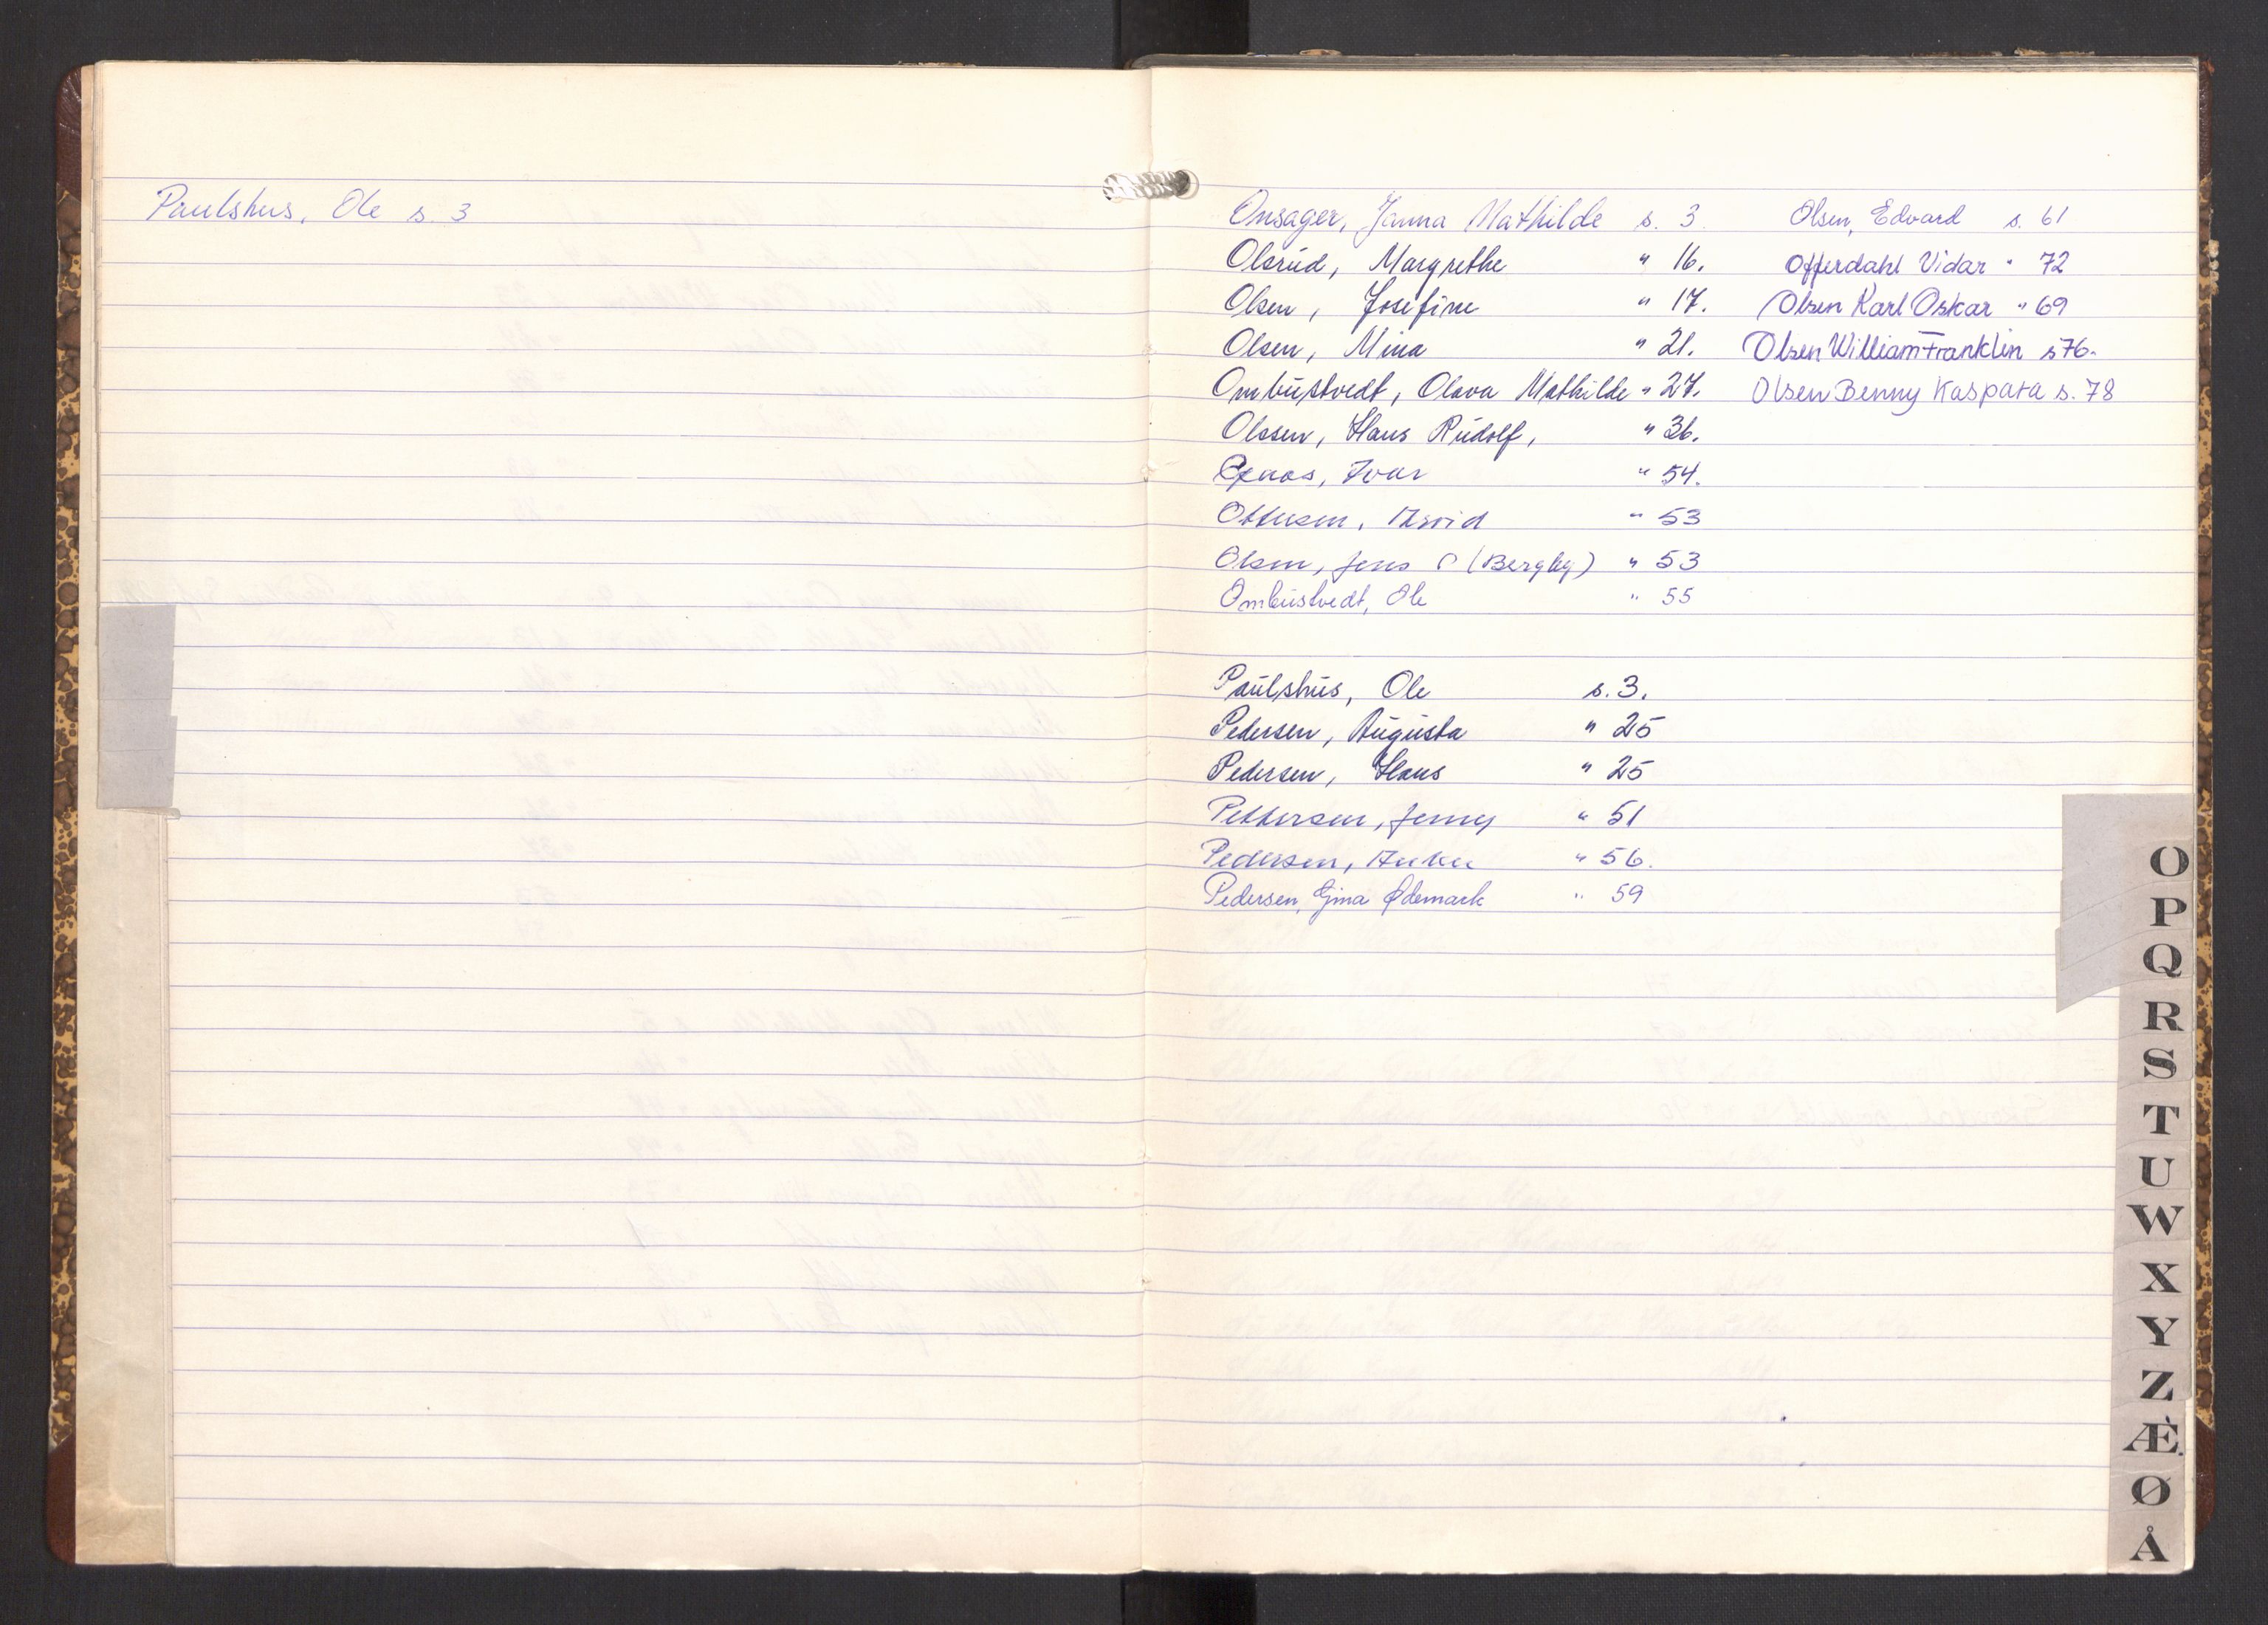 Paulshus, Ole s. 3
Onsager, Janna Mathilde s. 3
Olsrud, Margrethe " 16.
Olsen, Josefine " 17.
Olsen, Mina " 21.
Ombustvedt, Olava Mathilde " 27.
Olssen, Hans Rudolf, " 36.
Ivar " 54.
Ottesen, Arvid " 53
Olsen, Jens O (Bergby) " 53
Ombustvedt, Ole " 55
Olsen, Edvard s. 61
Offerdahl Vidar " 72
Olsen Karl Oskar " 69
Olsen William Franklin s 76.
Olsen Benny Kaspara s. 78
Paulshus, Ole s. 3.
Pedersen, Augusta " 25
Pedersen, Hans " 25
Pettersen, Jenny " 51
Pedersen, " 56.
Pedersen, Gina Ødemark " 59
O
P
Q
R
S
T
U
W
X
Y
Z
Æ.
Ø
Å